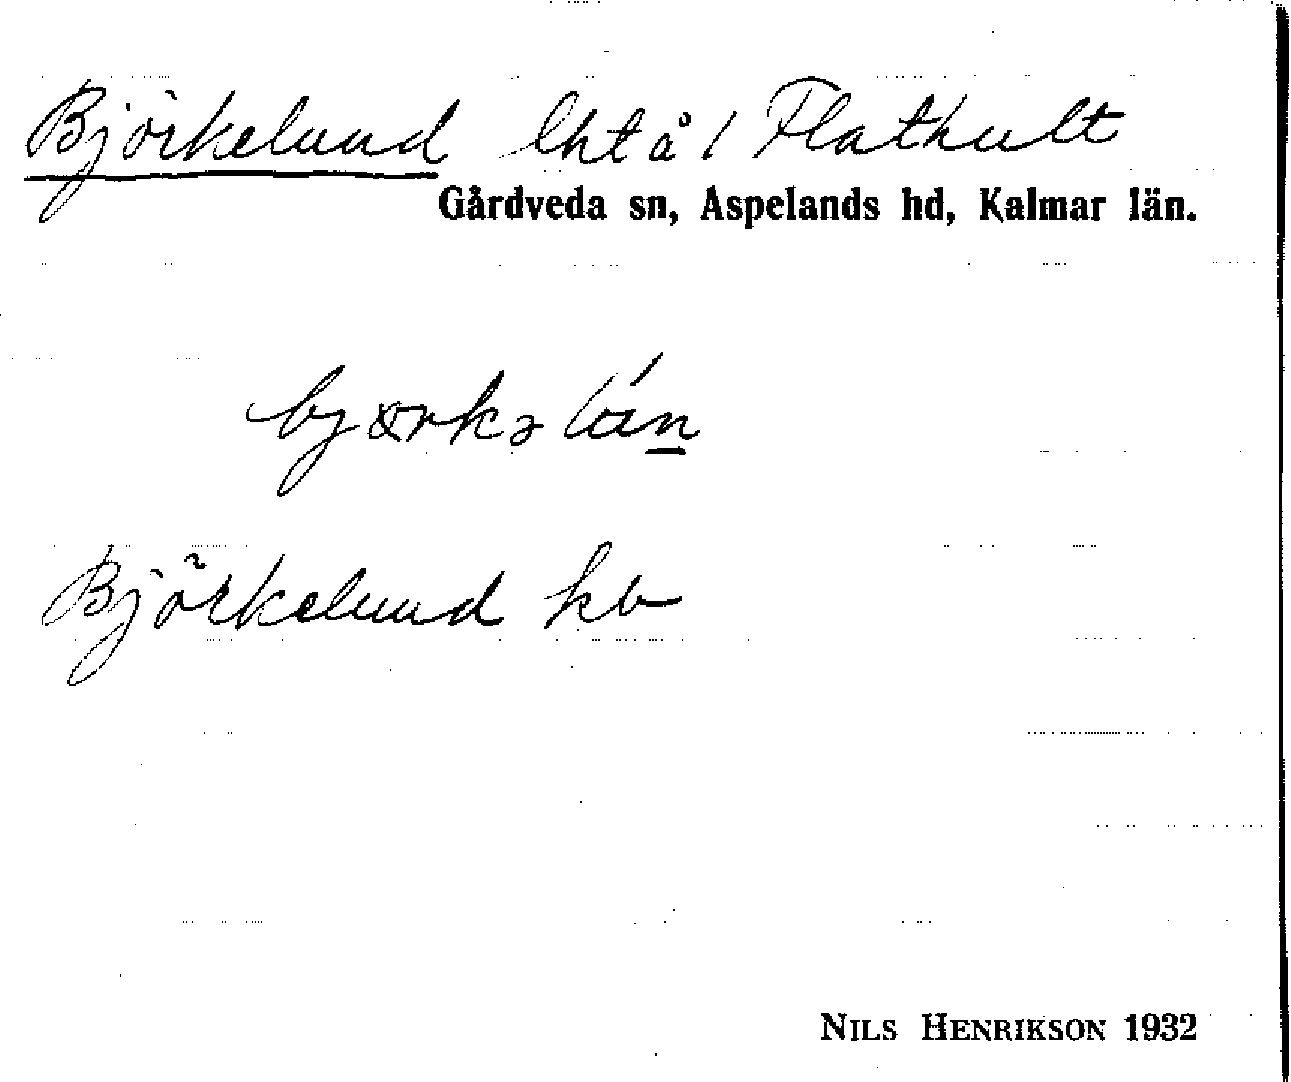 Björkelund lht å 1 Flathult
Gårdveda sn, Aspelands hd, Kalmar län.
bjørkəlún
Björkelund kb
NILS HENRIKSON 1932